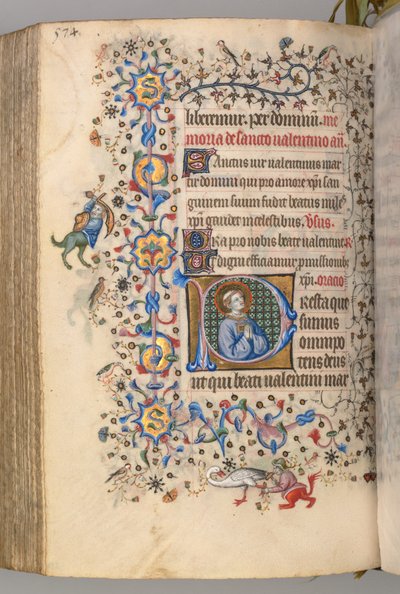 574.
liberemur. per dominū. me
moria de sancto ualentino añ.
Sanctus uir ualentinus mar
tir domini qui pro amore xp̄i san
guinem suum fudit beatus miles
xp̄i gaudet in celestibus. Vsus.
Ora pro nobis beate ualentine. R
Ut digni efficiamur promissionibꝫ
xp̄i. oratio
Presta que
sumus
omnipo
tens deus
ut qui beati ualentini mar